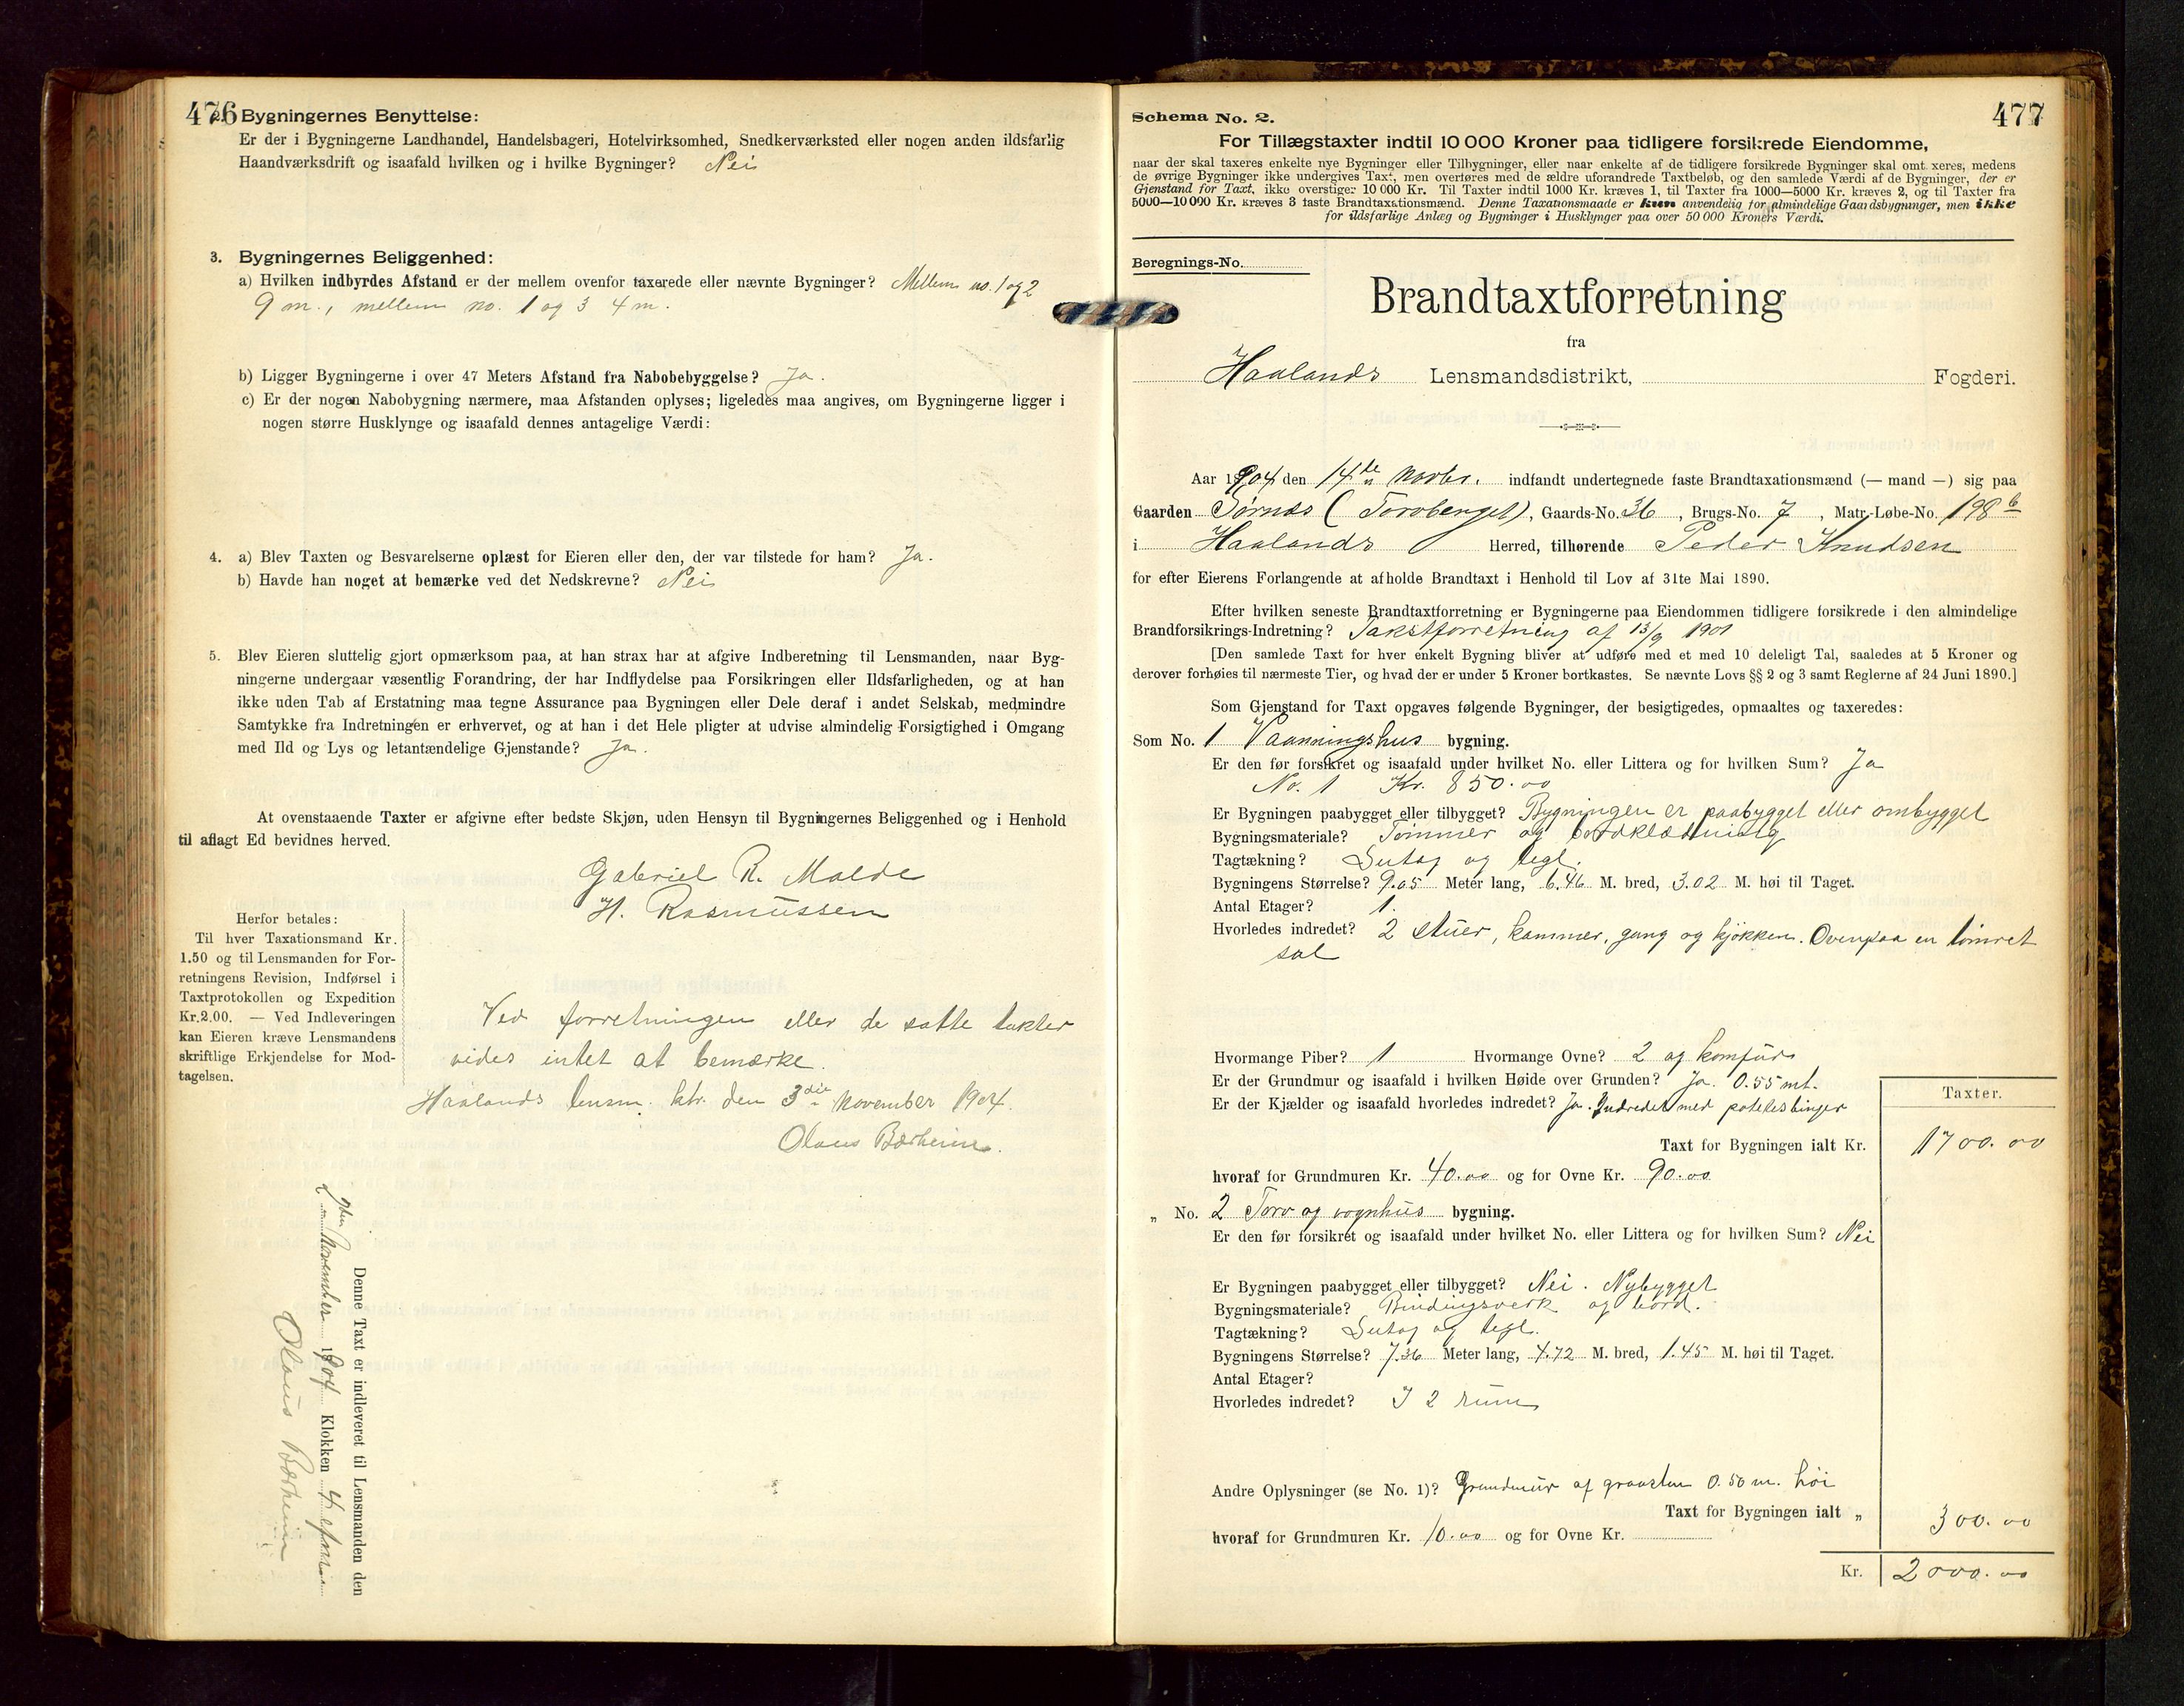 476
2. Bygningernes Benyttelse:
Er der i Bygningerne Landhandel, Handelsbageri, Hotelvirksomhed, Snedkerværksted eller nogen anden ildsfarlig
Haandværksdrift og isaafald hvilken og i hvilke Bygninger? Nei
3. Bygningernes Beliggenhed:
a) Hvilken indbyrdes Afstand er der mellem ovenfor taxerede eller nævnte Bygninger? Mellem no. 1 og 2
9 m., mellem no. 1 og 3 4 m.
b) Ligger Bygningerne i over 47 Meters Afstand fra Nabobebyggelse? Ja.
c) Er der nogen Nabobygning nærmere, maa Afstanden oplyses; ligeledes maa angives, om Bygningerne ligger i
nogen større Husklynge og isaafald dennes antagelige Værdi:
4. a) Blev Taxten og Besvarelserne oplæst for Eieren eller den, der var tilstede for ham? Ja.
b) Havde han noget at bemærke ved det Nedskrevne? Nei
5. Blev Eieren sluttelig gjort opmærksom paa, at han strax har at afgive Indberetning til Lensmanden, naar Byg-
ningerne undergaar væsentlig Forandring, der har Indflydelse paa Forsikringen eller Ildsfarligheden, og at han
ikke uden Tab af Erstatning maa tegne Assurance paa Bygningen eller Dele deraf i andet Selskab, medmindre
Samtykke fra Indretningen er erhvervet, og at han i det Hele pligter at udvise almindelig Forsigtighed i Omgang
med Ild og Lys og letantændelige Gjenstande? Ja.
At ovenstaaende Taxter er afgivne efter bedste Skjøn, uden Hensyn til Bygningernes Beliggenhed og i Henhold
til aflagt Ed bevidnes herved.
Gabriel R. Malde
H. Rasmussen
Herfor betales:
Til hver Taxationsmand Kr.
1.50 og til Lensmanden for For-
retningens Revision, Indførsel i
Taxtprotokollen og Expedition
Kr.2.00. — Ved Indleveringen
kan Eieren kræve Lensmandens
skriftlige Erkjendelse for Mod-
tagelsen.
Ved forretningen eller de satte takster
vides intet at bemærke.
Haalands lensm. ktr. den 3die november 1904.
Olaus Bærheim.
Denne Taxt er indleveret til Lensmanden den
November 1904 Klokken 4 efm.
Olaus Bærheim
477
Schema No. 2.
For Tillægstaxter indtil 10 000 Kroner paa tidligere forsikrede Eiendomme,
naar der skal taxeres enkelte nye Bygninger eller Tilbygninger, eller naar enkelte af de tidligere forsikrede Bygninger skal omtaxeres, medens
de øvrige Bygninger ikke undergives Taxt, men overføres med de ældre uforandrede Taxtbeløb, og den samlede Værdi af de Bygninger, der er
Gjenstand for Taxt, ikke overstiger 10 000 Kr. Til Taxter indtil 1000 Kr. kræves 1, til Taxter fra 1000—5000 Kr. kræves 2, og til Taxter fra
5000—10 000 Kr. kræves 3 faste Brandtaxationsmænd. Denne Taxationsmaade er kun anvendelig for almindelige Gaardsbygninger, men ikke
for ildsfarlige Anlæg og Bygninger i Husklynger paa over 50 000 Kroners Værdi.
Beregnings-No.
Brandtaxtforretning
fra
Haalands Lensmandsdistrikt, Fogderi.
Aar 1904 den 14de novbr. indfandt undertegnede faste Brandtaxationsmænd (— mand —) sig paa
Gaarden Tørnes (Torvberget), Gaards-No. 36, Brugs-No. 7, Matr.-Løbe-No. 198 b
i Haalands Herred, tilhørende Peder Knudsen
for efter Eierens Forlangende at afholde Brandtaxt i Henhold til Lov af 31te Mai 1890.
Efter hvilken seneste Brandtaxtforretning er Bygningerne paa Eiendommen tidligere forsikrede i den almindelige
Brandforsikrings-Indretning? Takstforretning af 13/9 1901
[Den samlede Taxt for hver enkelt Bygning bliver at udføre med et med 10 deleligt Tal, saaledes at 5 Kroner og
derover forhøies til nærmeste Tier, og hvad der er under 5 Kroner bortkastes. Se nævnte Lovs §§ 2 og 3 samt Reglerne af 24 Juni 1890.]
Som Gjenstand for Taxt opgaves følgende Bygninger, der besigtigedes, opmaaltes og taxeredes:
Som No. 1 Vaanningshus bygning.
Er den før forsikret og isaafald under hvilket No. eller Littera og for hvilken Sum? Ja
No. 1 Kr. 850.00
Er Bygningen paabygget eller tilbygget? Bygningen er paabygget eller ombygget
Bygningsmateriale? Tømmer og bordklædning
Tagtækning? Sutag og tegl.
Bygningens Størrelse? 9.05 Meter lang, 6.46 M. bred, 3.02 M. høi til Taget.
Antal Etager? 1.
Hvorledes indredet? 2 stuer, kammer, gang og kjøkken. Ovenpaa en tømret
sal
Hvormange Piber? 1 Hvormange Ovne? 2 og komfur
Er der Grundmur og isaafald i hvilken Høide over Grunden? Ja. 0.55 mt.
Er der Kjælder og isaafald hvorledes indredet? Ja. Indredet med potetesbinger
Taxter.
Taxt for Bygningen ialt Kr. 1700.00
hvoraf for Grundmuren Kr. 40.00 og for Ovne Kr. 90.00
„ No. 2 Torv og vognhus bygning.
Er den før forsikret og isaafald under hvilket No. eller Littera og for hvilken Sum? Nei
Er Bygningen paabygget eller tilbygget? Nei. Nybygget
Bygningsmateriale? Bindingsverk og bord.
Tagtækning? Sutag og tegl.
Bygningens Størrelse? 7.36 Meter lang, 4.72 M. bred, 1.45 M. høi til Taget.
Antal Etager?
Hvorledes indredet? I 2 rum
Andre Oplysninger (se No. 1)? Grundmur af graasten 0.50 m. høi
Taxt for Bygningen ialt „ 300.00
hvoraf for Grundmuren Kr. 10.00 og for Ovne Kr.
Kr. 2000.00